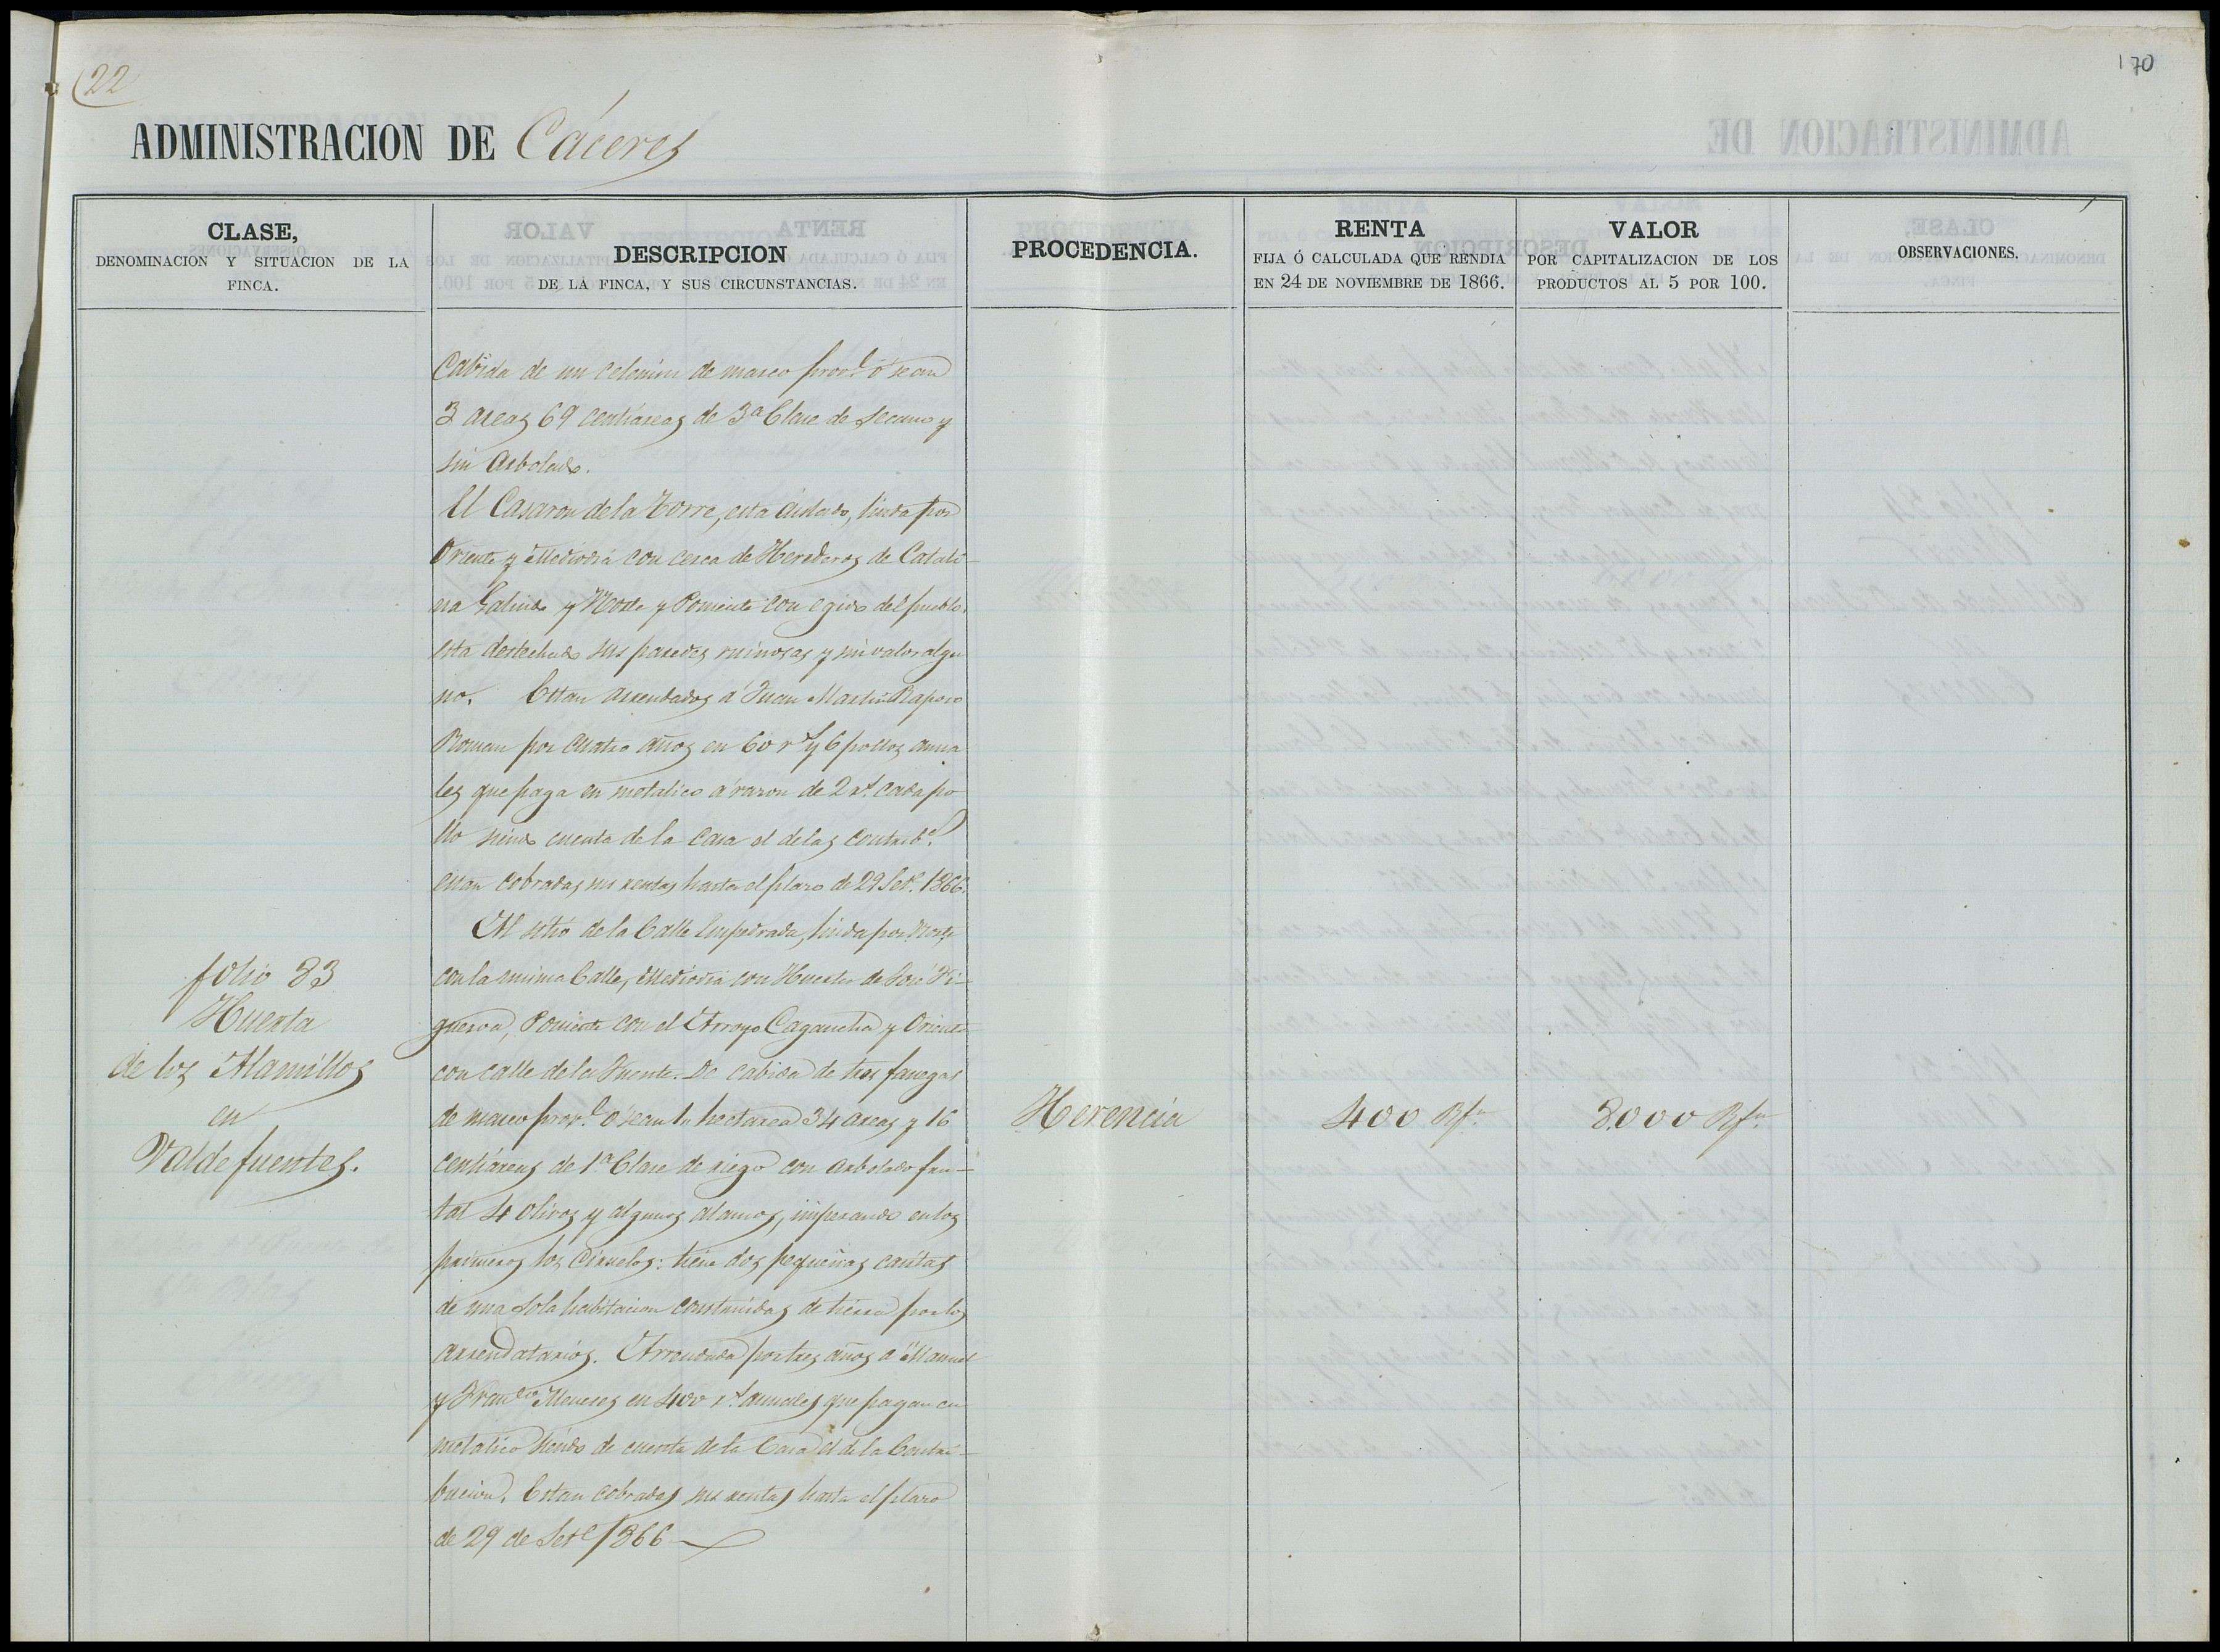 22
170
ADMINISTRACION DE Cáceres
CLASE,
DENOMINACION Y SITUACION DE LA
FINCA.
DESCRIPCION
DE LA FINCA, Y SUS CIRCUNSTANCIAS.
PROCEDENCIA.
RENTA
FIJA Ó CALCULADA QUE RENDIA
EN 24 DE NOVIEMBRE DE 1866.
VALOR
POR CAPITALIZACION DE LOS
PRODUCTOS AL 5 POR 100.
OBSERVACIONES.
Cabida de un celemin de marco provl. ó sean
3 areas 69 centiareas de 3ª Clase de secano y
sin Arbolado.
El Casaron de la Torre, esta aislado, linda por
Oriente y Mediodia con cerca de Herederos de Catali-
na Galindo y Norte y Poniente con egido del pueblo,
esta destechado sus paredes ruinosas y sin valor algu
no. Estan arrendados á Juan Martin Raposo
Roman por cuatro años en 60 rs y 6 pollos anua
les que paga en metalico á razon de 2 rs. cada po
llo siendo cuenta de la Casa el de las contribs.
estan cobradas sus rentas hasta el plazo de 29 Sete. 1866.
folio 83
Huerta
de los Alamillos
en
Valdefuentes.
Al sitio de la Calle Empedrada, linda por Norte
con la misma Calle, Mediodia con Huerta de José Fi-
gueroa, Poniente con el Arroyo Cagancha y Oriente
con calle de la Fuente. De cabida de tres fanegas
de marco provl. ó sean 1 hectarea 34 areas y 16
centiareas de 1ª Clase de riego con Arbolado fru-
tal 4 olivos y algunos alamos, imperando en los
primeros los Ciruelos: tiene dos pequeñas casitas
de una sola habitacion construidas de tierra por los
arrendatarios. Arrendada por tres años á Manuel
y Franco. Meneses en 400 rs. anuales que pagan en
metalico siendo de cuenta de la Casa el de la Contri-
bucion. Estan cobradas sus rentas hasta el plazo
de 29 de Sete 1866
Herencia
400 Rsn.
8.000 Rsn.